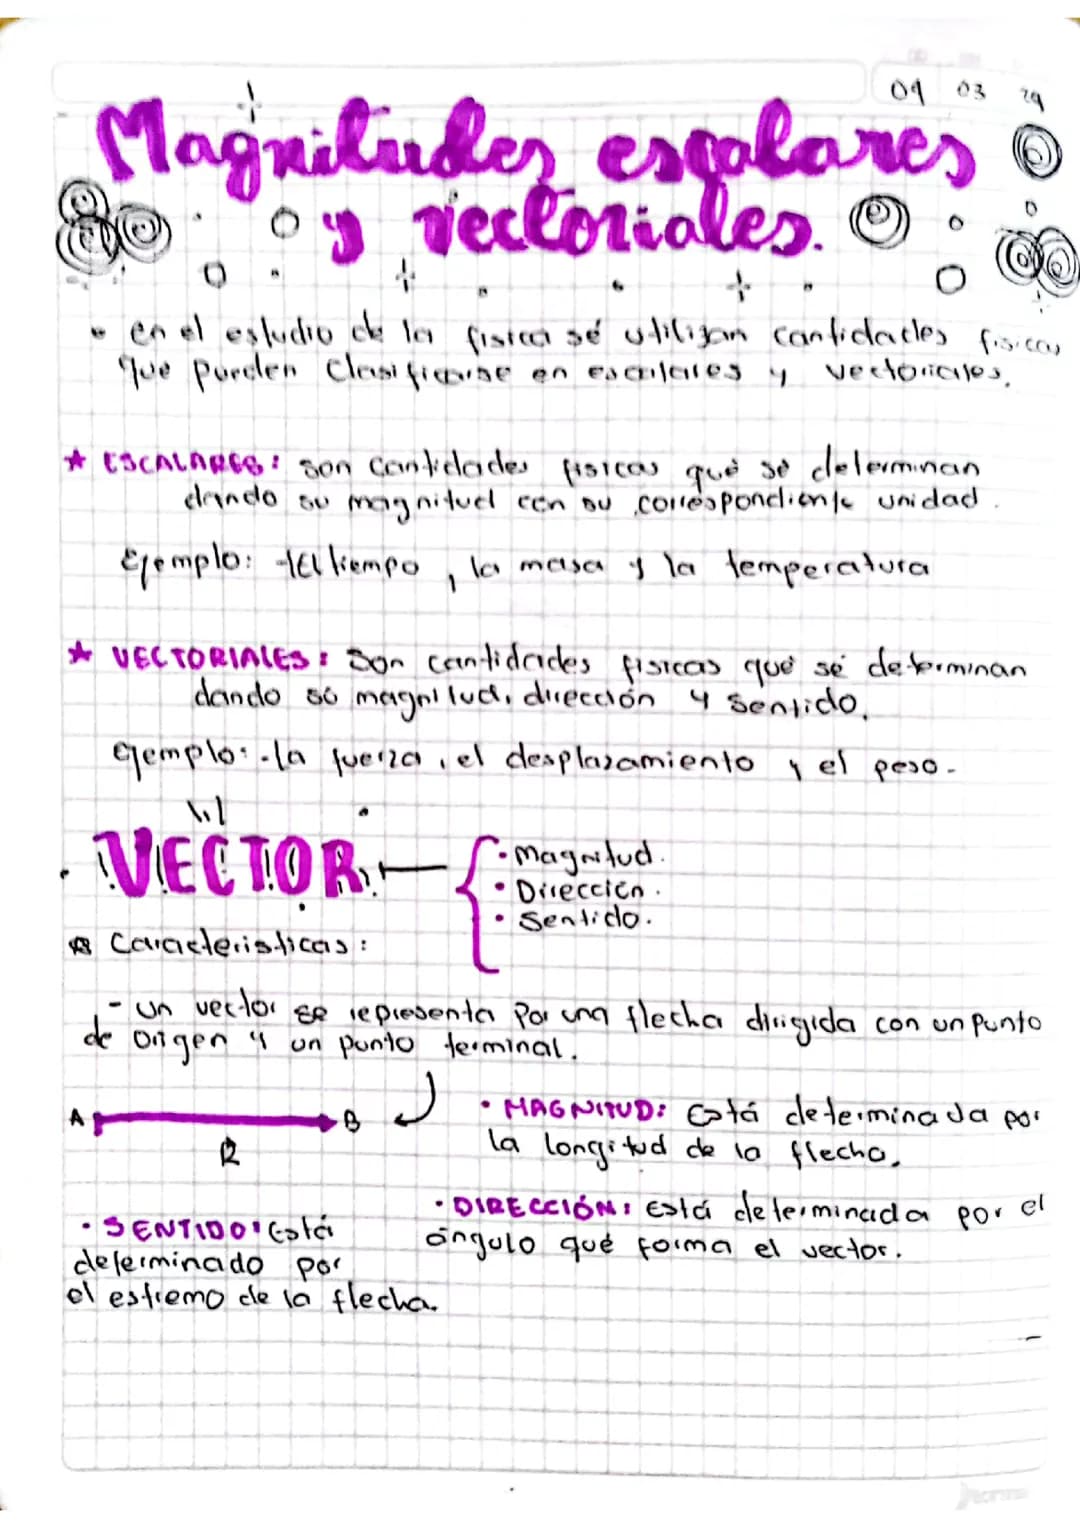 04 03 24
Magnitudes escalares
y vectoriales.
• en el estudio de la fisica sé utilizan cantidades fisicas
que pueden clasificarse en escalares y vectoriales.
★ ESCALARES: son cantidades fisicas qué sé determinan
dando su magnitud con su correspondiente unidad.
Ejemplo: - El tiempo, la masa y la temperatura
★ VECTORIALES: Son cantidades fisicas qué sé determinan
dando su magnitud, dirección y sentido.
ejemplo: - la fuerza, el desplazamiento y el peso.
VECTOR
• Magnitud.
• Dirección.
• Sentido.
Caracteristicas:
- un vector se representa por una flecha dirigida con un punto
de origen y un punto terminal.
A B
R
• MAGNITUD: Está determinada por
la longitud de la flecha.
• DIRECCIÓN: Está determinada por el
ángulo qué forma el vector.
• SENTIDO: Está
determinado por
el estremo de la flecha.